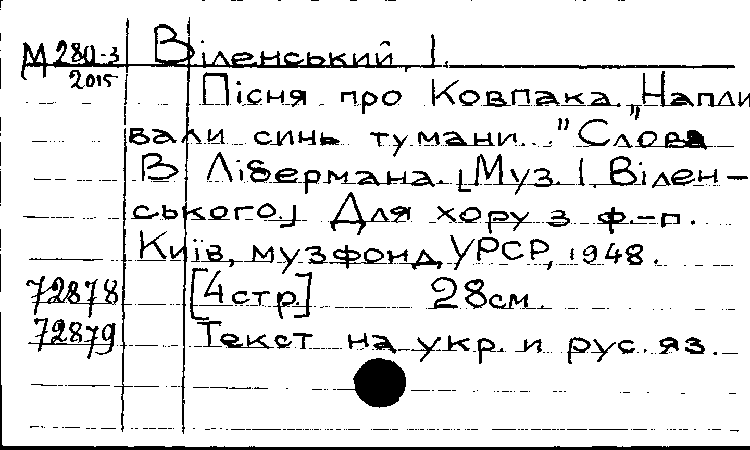 М 280-3 Віленський, І.
2015
Пісня про Ковпака. „Напли
вали синь тумани..." Слова
В Лібермана. [Муз. І. Вілен-
ського.] Для хору з ф.-п.
Київ, музфонд УРСР, 1948.
72878 [4 стр.] 28 см.
72879 Текст на укр. и рус. яз.